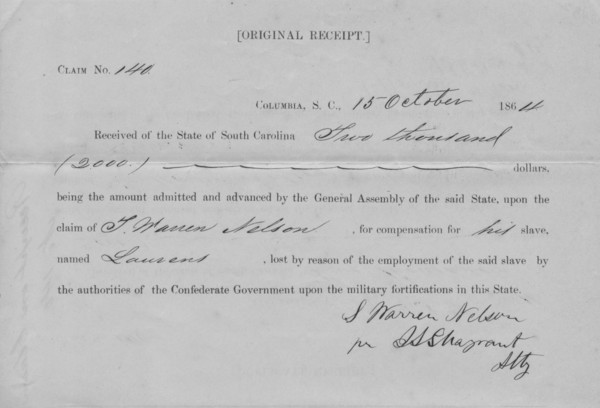 [ORIGINAL RECEIPT.]
CLAIM No. 140.
COLUMBIA, S. C., 15 October 1864
Received of the State of South Carolina Two thousand
(2000.) dollars,
being the amount admitted and advanced by the General Assembly of the said State, upon the
claim of S. Warren Nelson , for compensation for his slave,
named Laurens , lost by reason of the employment of the said slave by
the authorities of the Confederate Government upon the military fortifications in this State.
S Warren Nelson
pr
Atty